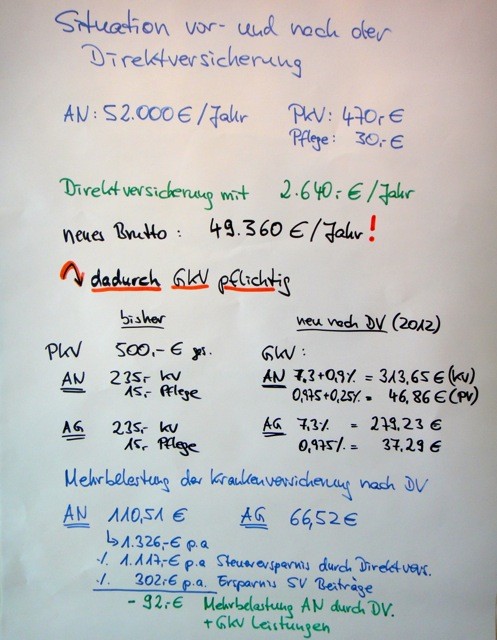 Situation vor- und nach der
Direktversicherung
AN: 52.000 €/Jahr PKV: 470,- €
Pflege: 30,- €
Direktversicherung mit 2.640,- €/Jahr
neues Brutto: 49.360 €/Jahr!
dadurch GKV pflichtig
bisher neu nach DV (2012)
PKV 500,- € ges. GKV:
AN 235,- KV AN 7,3+0,9% = 313,65 € (KV)
15,- Pflege 0,975+0,25% = 46,86 € (PV)
AG 235,- KV AG 7,3% = 279,23 €
15,- Pflege 0,975% = 37,29 €
Mehrbelastung der Krankenversicherung nach DV
AN 110,51 € AG 66,52 €
↳ 1.326,- € p.a
·/. 1.117,- € p.a Steuerersparnis durch Direktvers.
·/. 302,- € p.a. Ersparnis SV Beiträge
- 92,- € Mehrbelastung AN durch DV.
+ GKV Leistungen